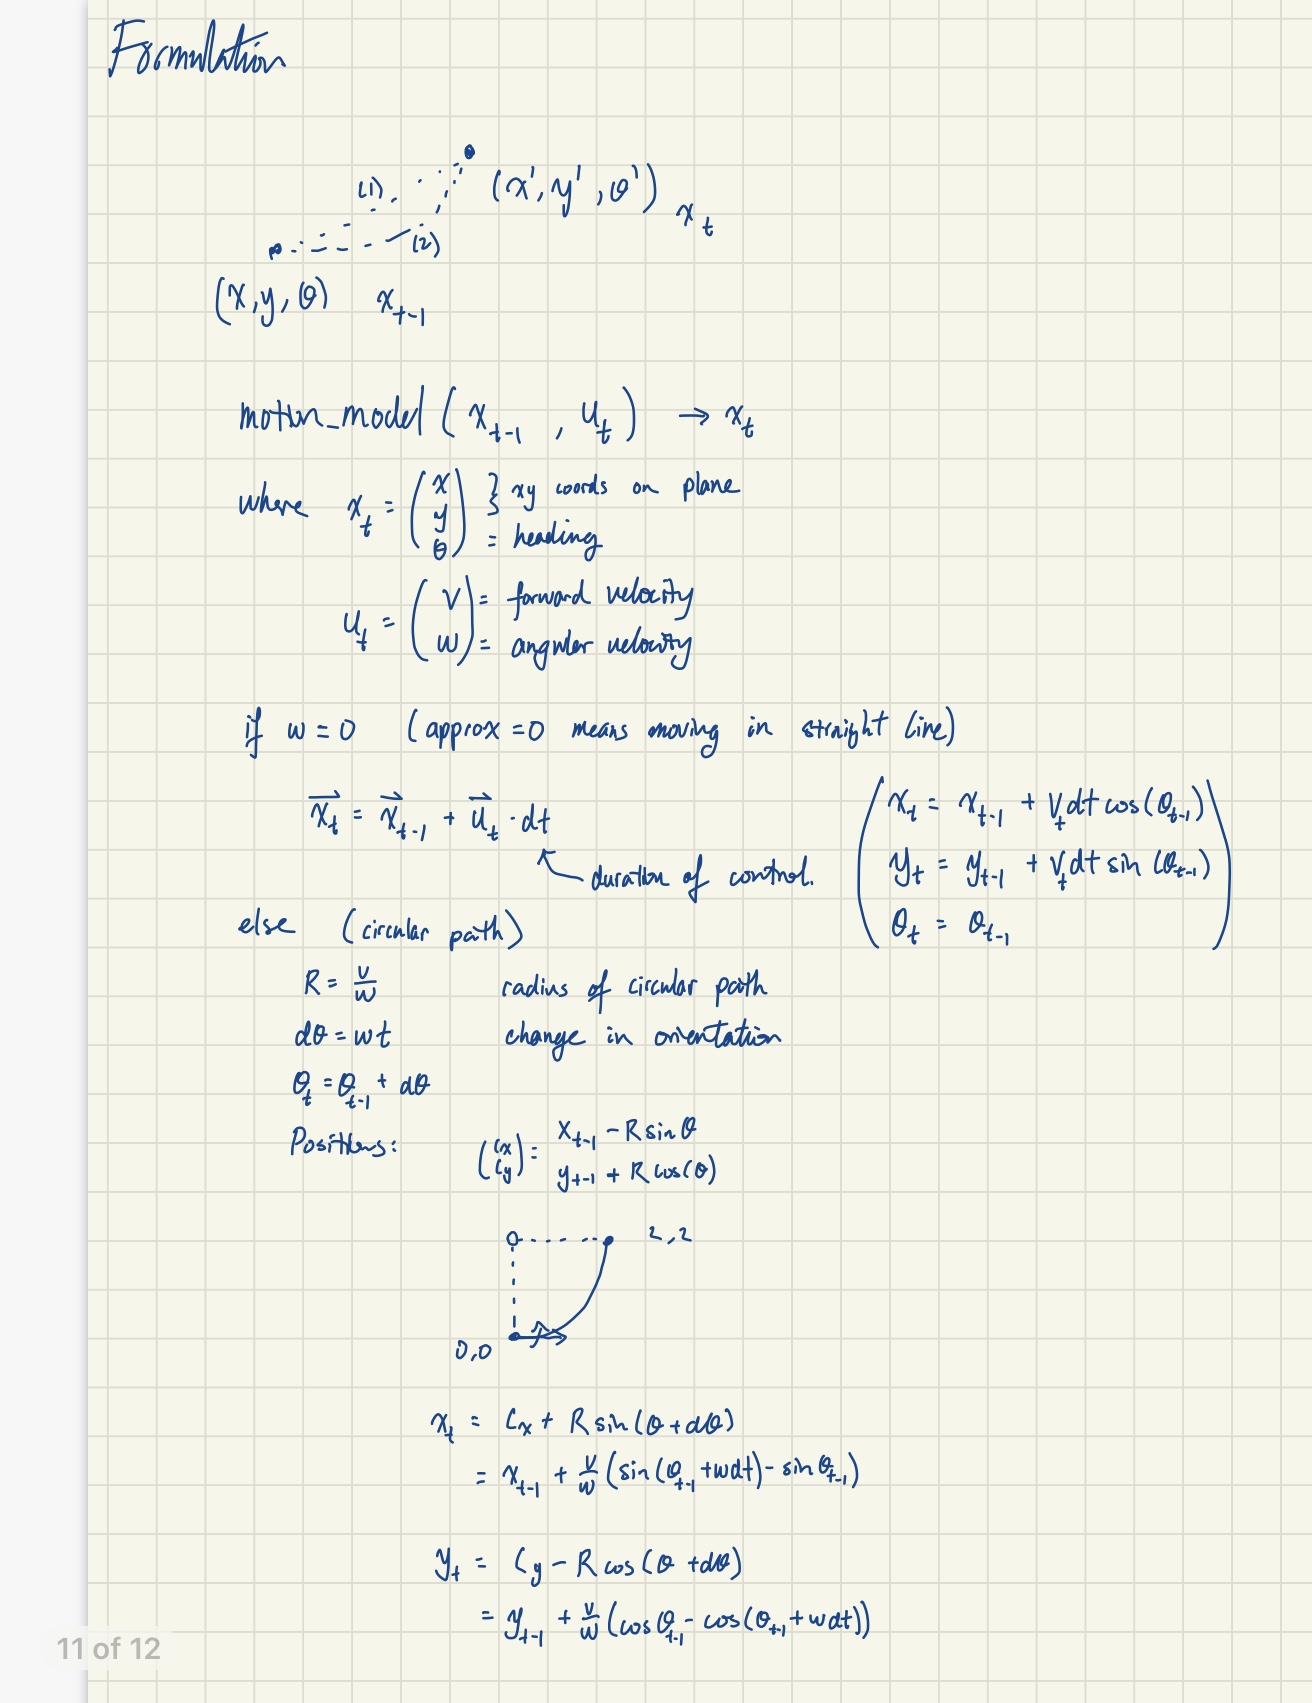 Formulation
(1)
(x', y', θ') x_t
(2)
(x, y, θ) x_{t-1}
motion_model ( x_{t-1} , u_t ) → x_t
where x_t = ( x y θ ) } xy coords on plane
= heading
u_t = ( v = forward velocity
w ) = angular velocity
if w = 0 ( approx = 0 means moving in straight line )
x_t = x_{t-1} + u_t · dt
duration of control.
x_t = x_{t-1} + v_t dt cos(θ_{t-1})
y_t = y_{t-1} + v_t dt sin(θ_{t-1})
θ_t = θ_{t-1}
else (circular path)
R = v/w radius of circular path
dθ = wt change in orientation
θ_t = θ_{t-1} + dθ
Positions: ( Cx Cy ) = x_{t-1} - R sin θ
y_{t-1} + R cos(θ)
2,2
0,0
x_t = Cx + R sin(θ + dθ)
= x_{t-1} + v/w ( sin(θ_{t-1} + wdt) - sin θ_{t-1} )
y_t = Cy - R cos(θ + dθ)
= y_{t-1} + v/w ( cos θ_{t-1} - cos(θ_{t-1} + wdt) )
11 of 12